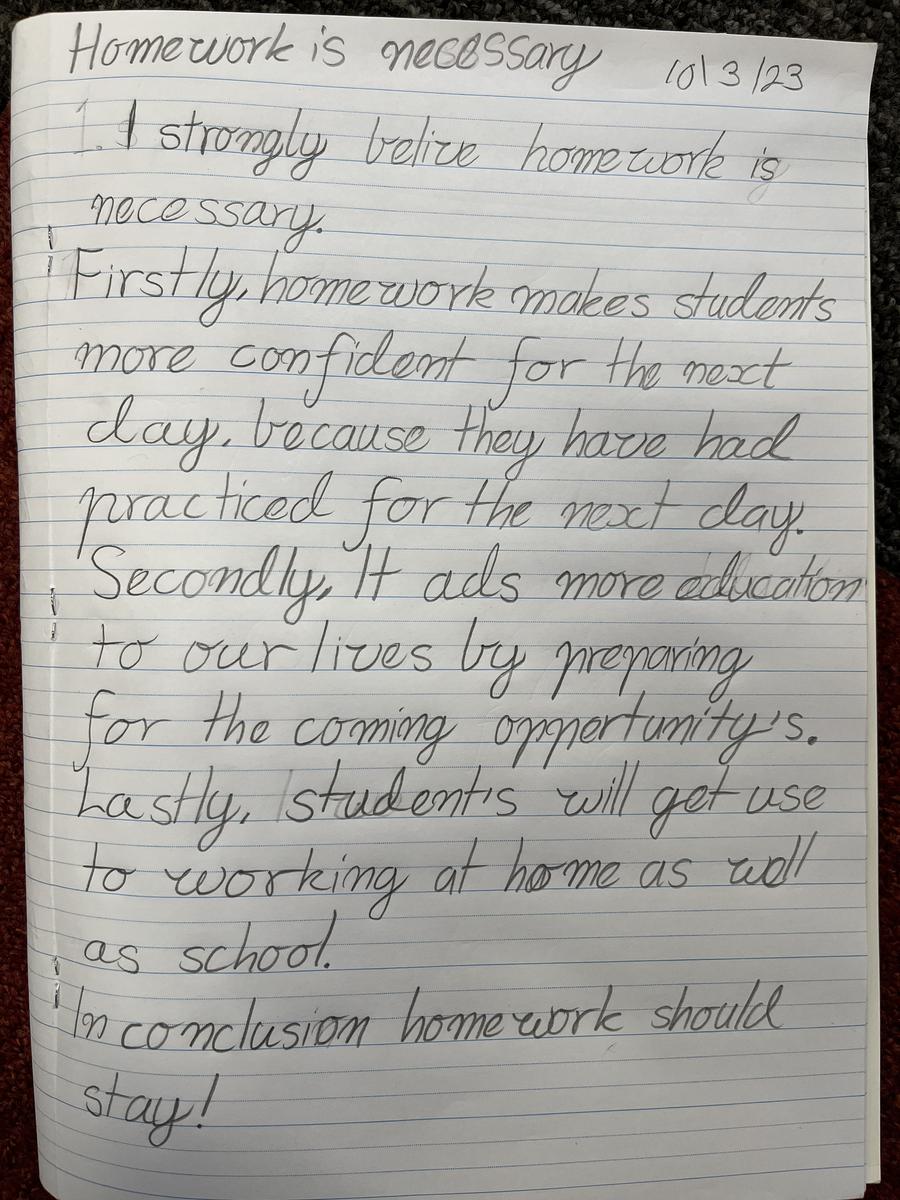 Homework is necessary 10/3/23
1. I strongly belive homework is
necessary.
Firstly, homework makes students
more confident for the next
day. because they have had
practiced for the next day.
Secondly, It ads more education
to our lives by preparing
for the coming opportunity's.
Lastly, student's will get use
to working at home as well
as school.
In conclusion homework should
stay!